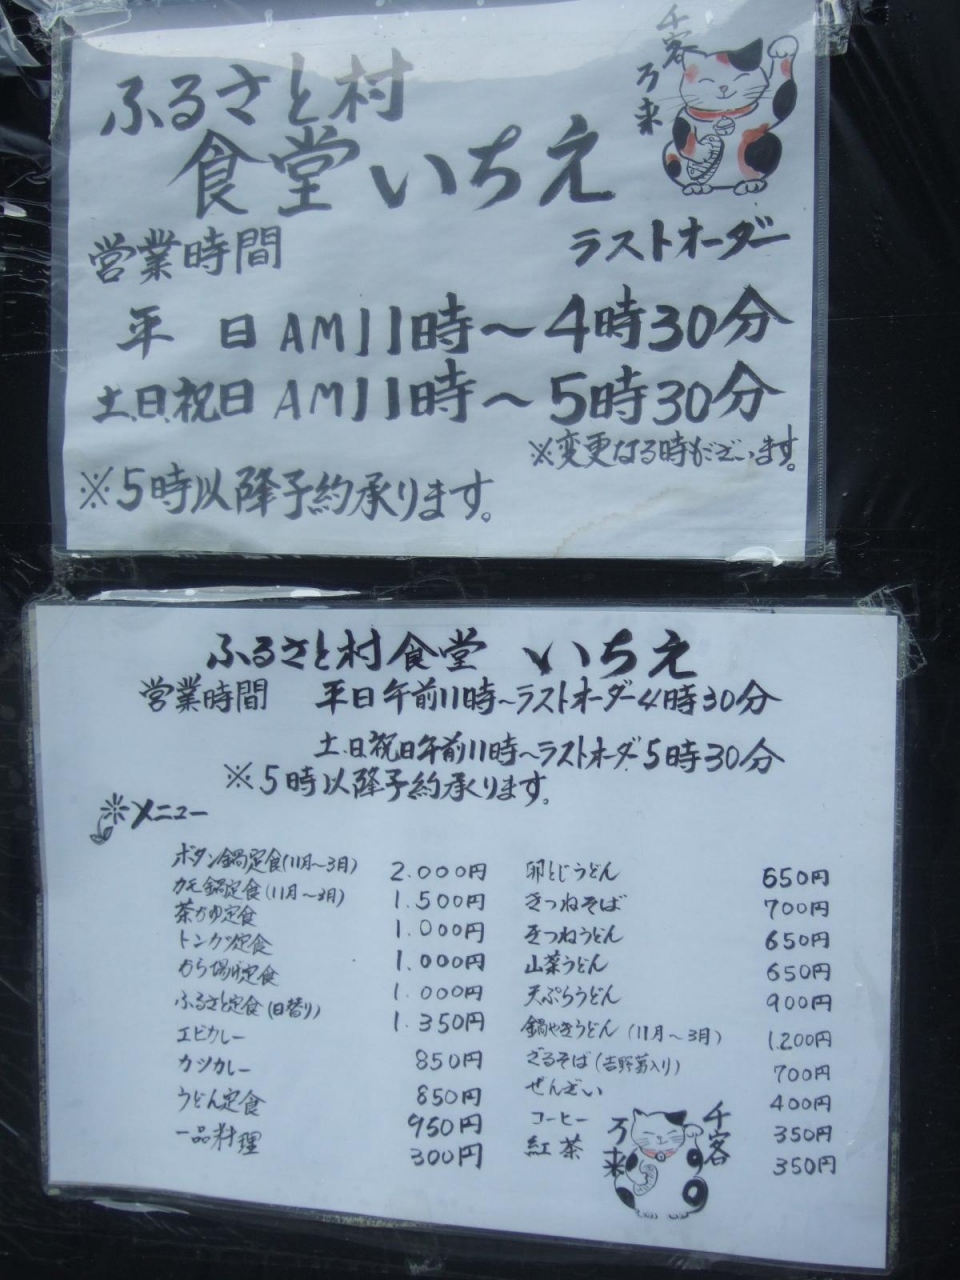 千客
万来
ふるさと村
食堂いちえ
営業時間 ラストオーダー
平 日 AM11時〜4時30分
土.日.祝日 AM11時〜5時30分
※変更なる時もございます。
※5時以降予約承ります。
ふるさと村食堂 いちえ
営業時間 平日午前11時〜ラストオーダー4時30分
土.日祝日午前11時〜ラストオーダ5時30分
※5時以降予約承ります。
メニュー
ボタン鍋定食(11月〜3月) 2.000円
カモ鍋定食(11月〜3月) 1.500円
茶がゆ定食 1.000円
トンカツ定食 1.000円
から揚げ定食 1.000円
ふるさと定食(日替り) 1.350円
エビカレー 850円
カツカレー 850円
うどん定食 950円
一品料理 300円
卵とじうどん 650円
きつねそば 700円
きつねうどん 650円
山菜うどん 650円
天ぷらうどん 900円
鍋やきうどん(11月〜3月) 1.200円
ざるそば(吉野葛入り) 700円
ぜんざい 400円
コーヒー 350円
紅茶 350円
千客
万来